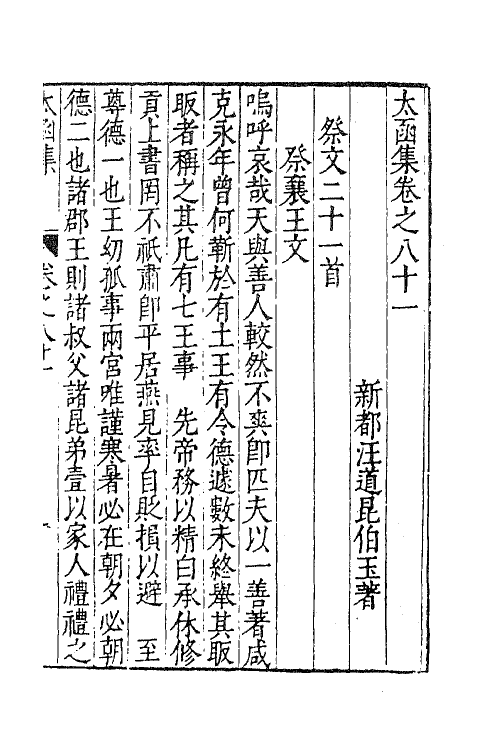 太函集卷之八十一
新都汪道昆伯玉著
祭文二十一首
祭襄王文
嗚呼哀哉天與善人較然不爽卽匹夫以一善著咸
克永年曾何靳於有土王有令德遽數未終舉其畈
畈者稱之其凡有七王事 先帝務以精白承休修
貢上書罔不祇肅卽平居燕見率自貶損以避 至
尊德一也王幼孤事兩宮唯謹寒暑必在朝夕必朝
德二也諸郡王則諸叔父諸昆弟壹以家人禮禮之
太函集 卷之八十一